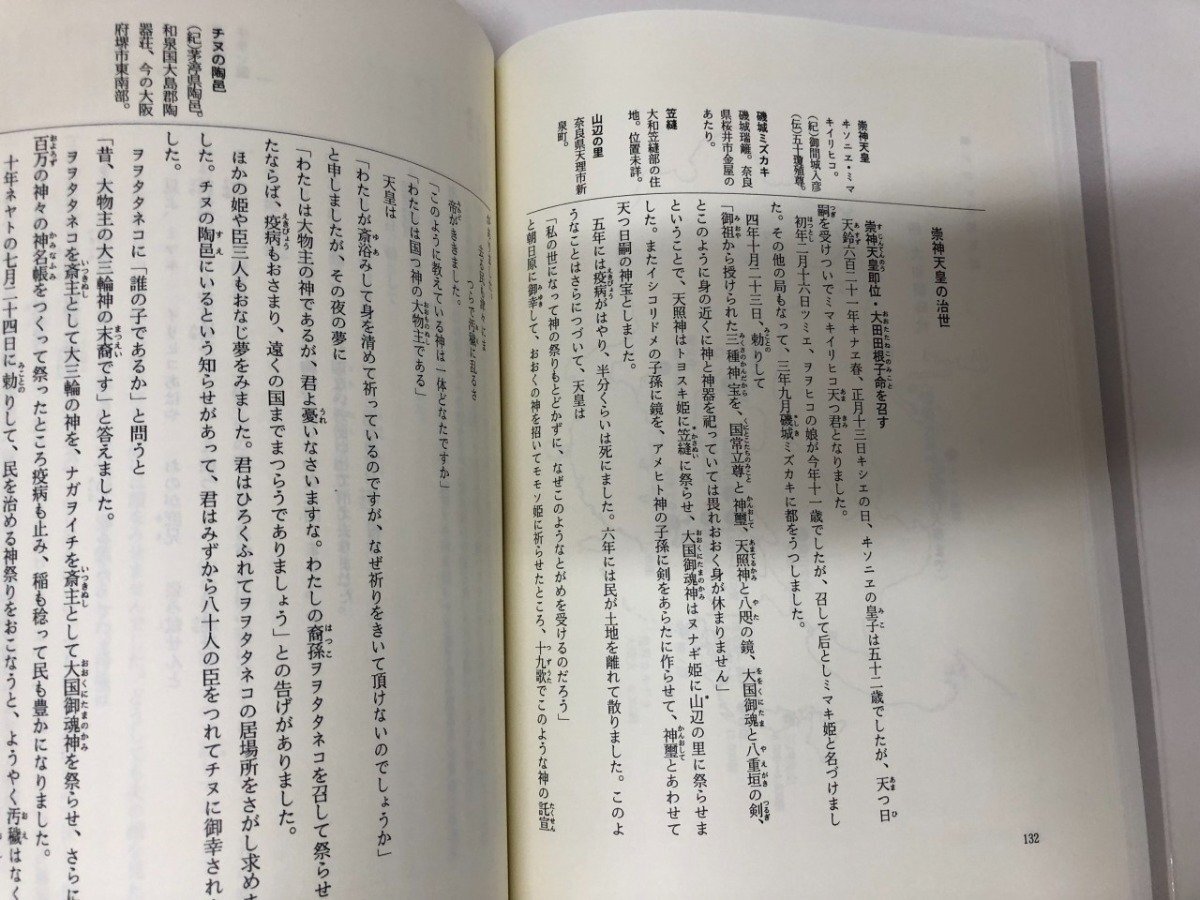 崇神天皇の治世
崇神天皇即位・大田田根子命を召す
天鈴六百二十一年キナヱ春、正月十三日キシヱの日、キソニヱの皇子は五十二歳でしたが、天つ日
嗣を受けついでミマキイリヒコ天つ君となりました。
初年二月十六日ツミエ、ヲヲヒコの娘が今年十一歳でしたが、召して后としミマキ姫と名づけまし
た。その他の局もなって、三年九月磯城ミズカキに都をうつしました。
四年十月二十三日、勅りして
「御祖から授けられた三種神宝を、国常立尊と神璽、天照神と八咫の鏡、大国御魂と八重垣の剣、
とこのように身の近くに神と神器を祀っていては畏れおおく身が休まりません」
ということで、天照神はトヨスキ姫に笠縫に祭らせ、大国御魂神はヌナギ姫に山辺の里に祭らせま
した。またイシコリドメの子孫に鏡を、アメヒト神の子孫に剣をあらたに作らせて、神璽とあわせて
天つ日嗣の神宝としました。
五年には疫病がはやり、半分くらいは死にました。六年には民が土地を離れて散りました。このよ
うなことはさらにつづいて、天皇は
「私の世になって神の祭りもとどかずに、なぜこのようなとがめを受けるのだろう」
と朝日原に御幸して、おおくの神を招いてモモソ姫に祈らせたところ、十九歌でこのような神の託宣
崇神天皇
キソニヱ・ミマ
キイリヒコ。
(紀)御間城入彦
(伝)五十瓊殖尊。
磯城ミズカキ
磯城瑞籬。奈良
県桜井市金屋の
あたり。
笠縫
大和笠縫部の住
地。位置未詳。
山辺の里
奈良県天理市新
泉町。
132
帝がききました。
「このように教えている神は一体どなたですか」
「わたしは国つ神の大物主である」
天皇は
「わたしが斎浴みして身を清めて祈っているのですが、なぜ祈りをきいて頂けないのでしょうか」
と申しましたが、その夜の夢に
「わたしは大物主の神であるが、君よ憂いなさいますな。わたしの裔孫ヲヲタタネコを召して祭らせ
たならば、疫病もおさまり、遠くの国までまつらうでありましょう」との告げがありました。
ほかの姫や臣三人もおなじ夢をみました。君はひろくふれてヲヲタタネコの居場所をさがし求めま
した。チヌの陶邑にいるという知らせがあって、君はみずから八十人の臣をつれてチヌに御幸され
した。
ヲヲタタネコに「誰の子であるか」と問うと
「昔、大物主の大三輪神の末裔です」と答えました。
ヲヲタタネコを斎主として大三輪の神を、ナガヲイチを斎主として大国御魂神を祭らせ、さらに
百万の神々の神名帳をつくって祭ったところ疫病も止み、稲も稔って民も豊かになりました。
十年ネヤトの七月二十四日に勅りして、民を治める神祭りをおこなうと、ようやく汚穢はなく
チヌの陶邑
(紀)茅渟県陶邑。
和泉国大島郡陶
器荘、今の大阪
府堺市東南部。